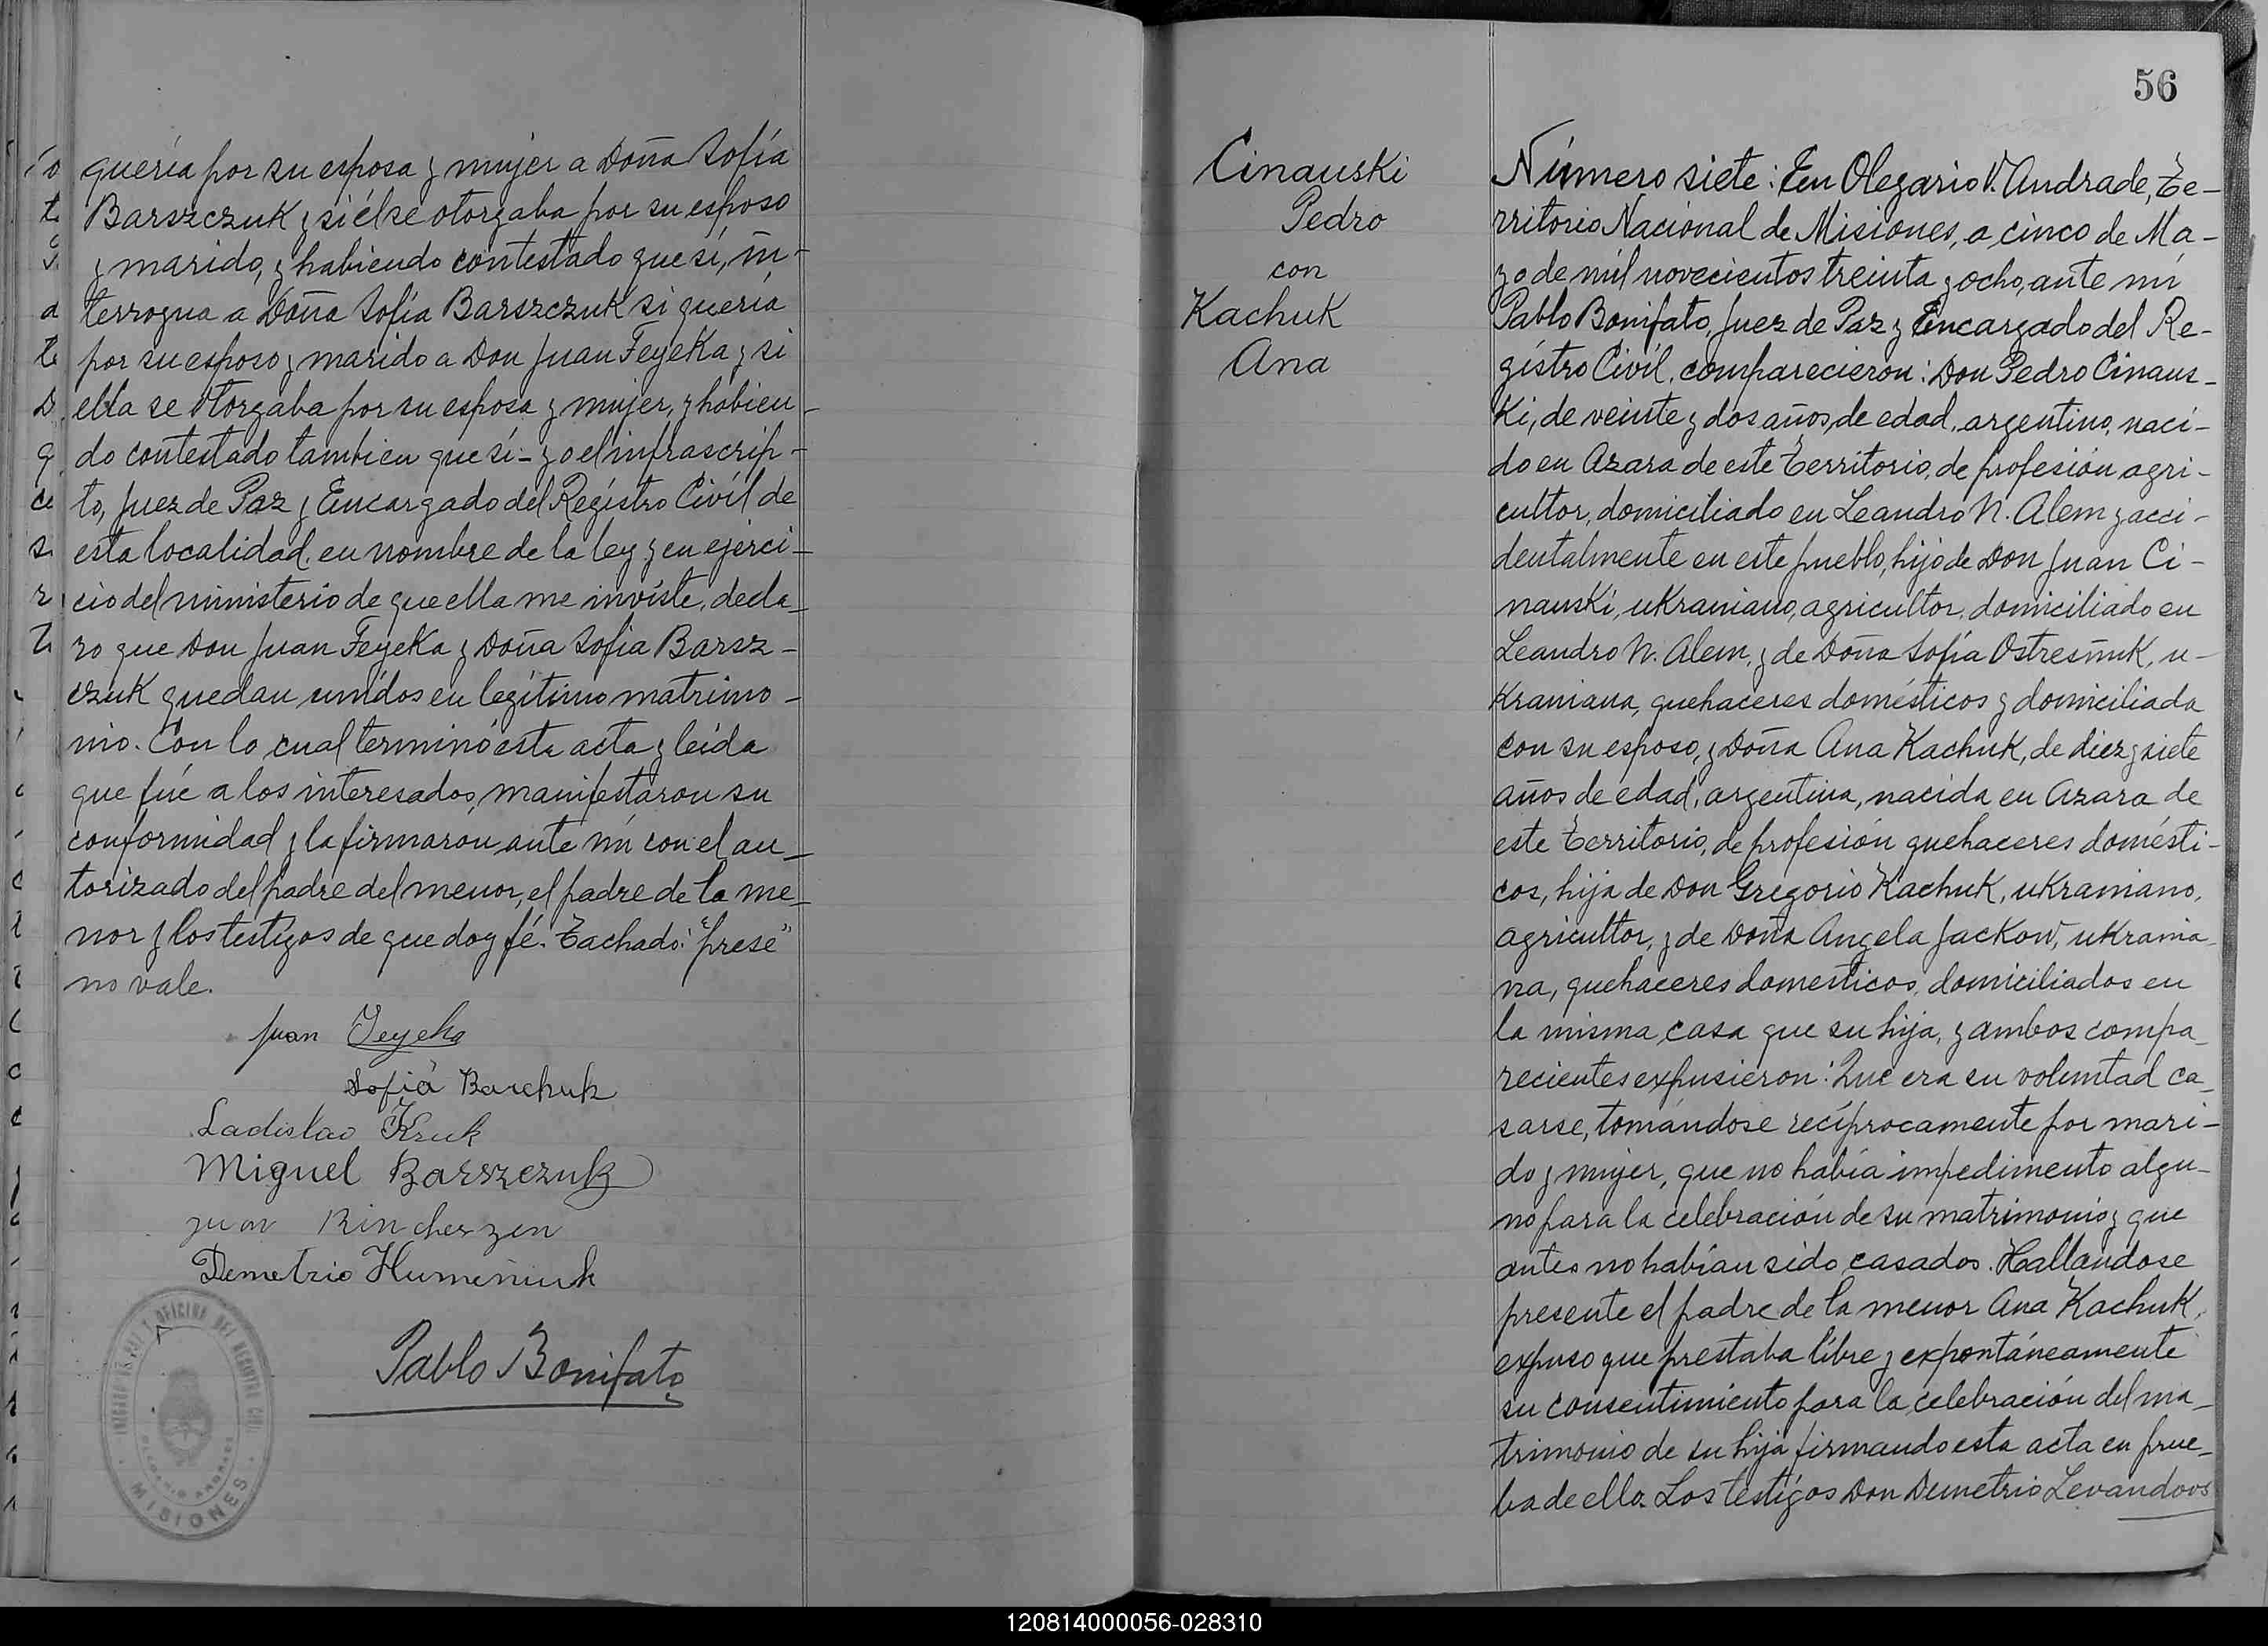 quería por su esposa y mujer a Doña Sofía
Barszczuk y si él se otorgaba por su esposo
y marido, y habiendo contestado que sí, in-
terrogua a Doña Sofía Barszczuk si quería
por su esposo y marido a Don Juan Feyeka y si
ella se otorgaba por su esposa y mujer, y habien-
do contestado tambien que sí- yo el infrascrip-
to, Juez de Paz y Encargado del Registro Civíl de
esta localidad, en nombre de la ley y en ejerci-
cio del ministerio de que ella me inviste, decla-
ro que Don Juan Feyeka y Doña Sofia Barsz-
czuk quedan unidos en legítimo matrimo-
nio. Con lo cual terminó esta acta y leida
que fué a los interesados, manifestaron su
conformidad y la firmaron ante mí con el au-
torizado del padre del menor, el padre de la me-
nor y los testigos de que doy fé. Tachado: "prese"
no vale.
Juan Feyeka
Sofiá Barchuk
Ladislao Kruk
Miguel Barszczuk
Juan
Demetrio Humeniuk
Pablo Bonifato
MISIONES
56
Cinauski
Pedro
con
Kachuk
Ana
Número siete: En Olegario V. Andrade, Te-
rritorio Nacional de Misiones, a cinco de Ma-
yo de mil novecientos treinta y ocho, ante mí
Pablo Bonifato, Juez de Paz y Encargado del Re-
gistro Civíl, comparecieron: Don Pedro Cinaus-
ki, de veinte y dos años, de edad, argentino, naci-
do en Azara de este Territorio, de profesión agri-
cultor, domiciliado en Leandro N. Alem y acci-
dentalmente en este pueblo, hijo de Don Juan Ci-
nauski, ukraniano, agricultor, domiciliado en
Leandro N. Alem, y de Doña Sofía Ostresñuk, u-
kraniana, quehaceres domésticos y domiciliada
con su esposo, y Doña Ana Kachuk, de diez y siete
años de edad, argentina, nacida en Azara de
este Territorio, de profesión quehaceres domésti-
cos, hija de Don Gregorio Kachuk, ukraniano,
agricultor, y de Doña Angela Jackow, ukrania-
na, quehaceres domesticos, domiciliados en
la misma casa que su hija, y ambos compa-
recientes expusieron: Que era su voluntad ca-
sarse, tomándose recíprocamente por mari-
do y mujer, que no había impedimento algu-
no para la celebración de su matrimonio y que
antes no habían sido casados. Hallandose
presente el padre de la menor Ana Kachuk,
expuso que prestaba líbre y expontáneamente
su consentimiento para la celebración del ma-
trimonio de su hija firmando esta acta en prue-
ba de ello. Los testígos Don Demetrio Levandovs
120814000056-028310